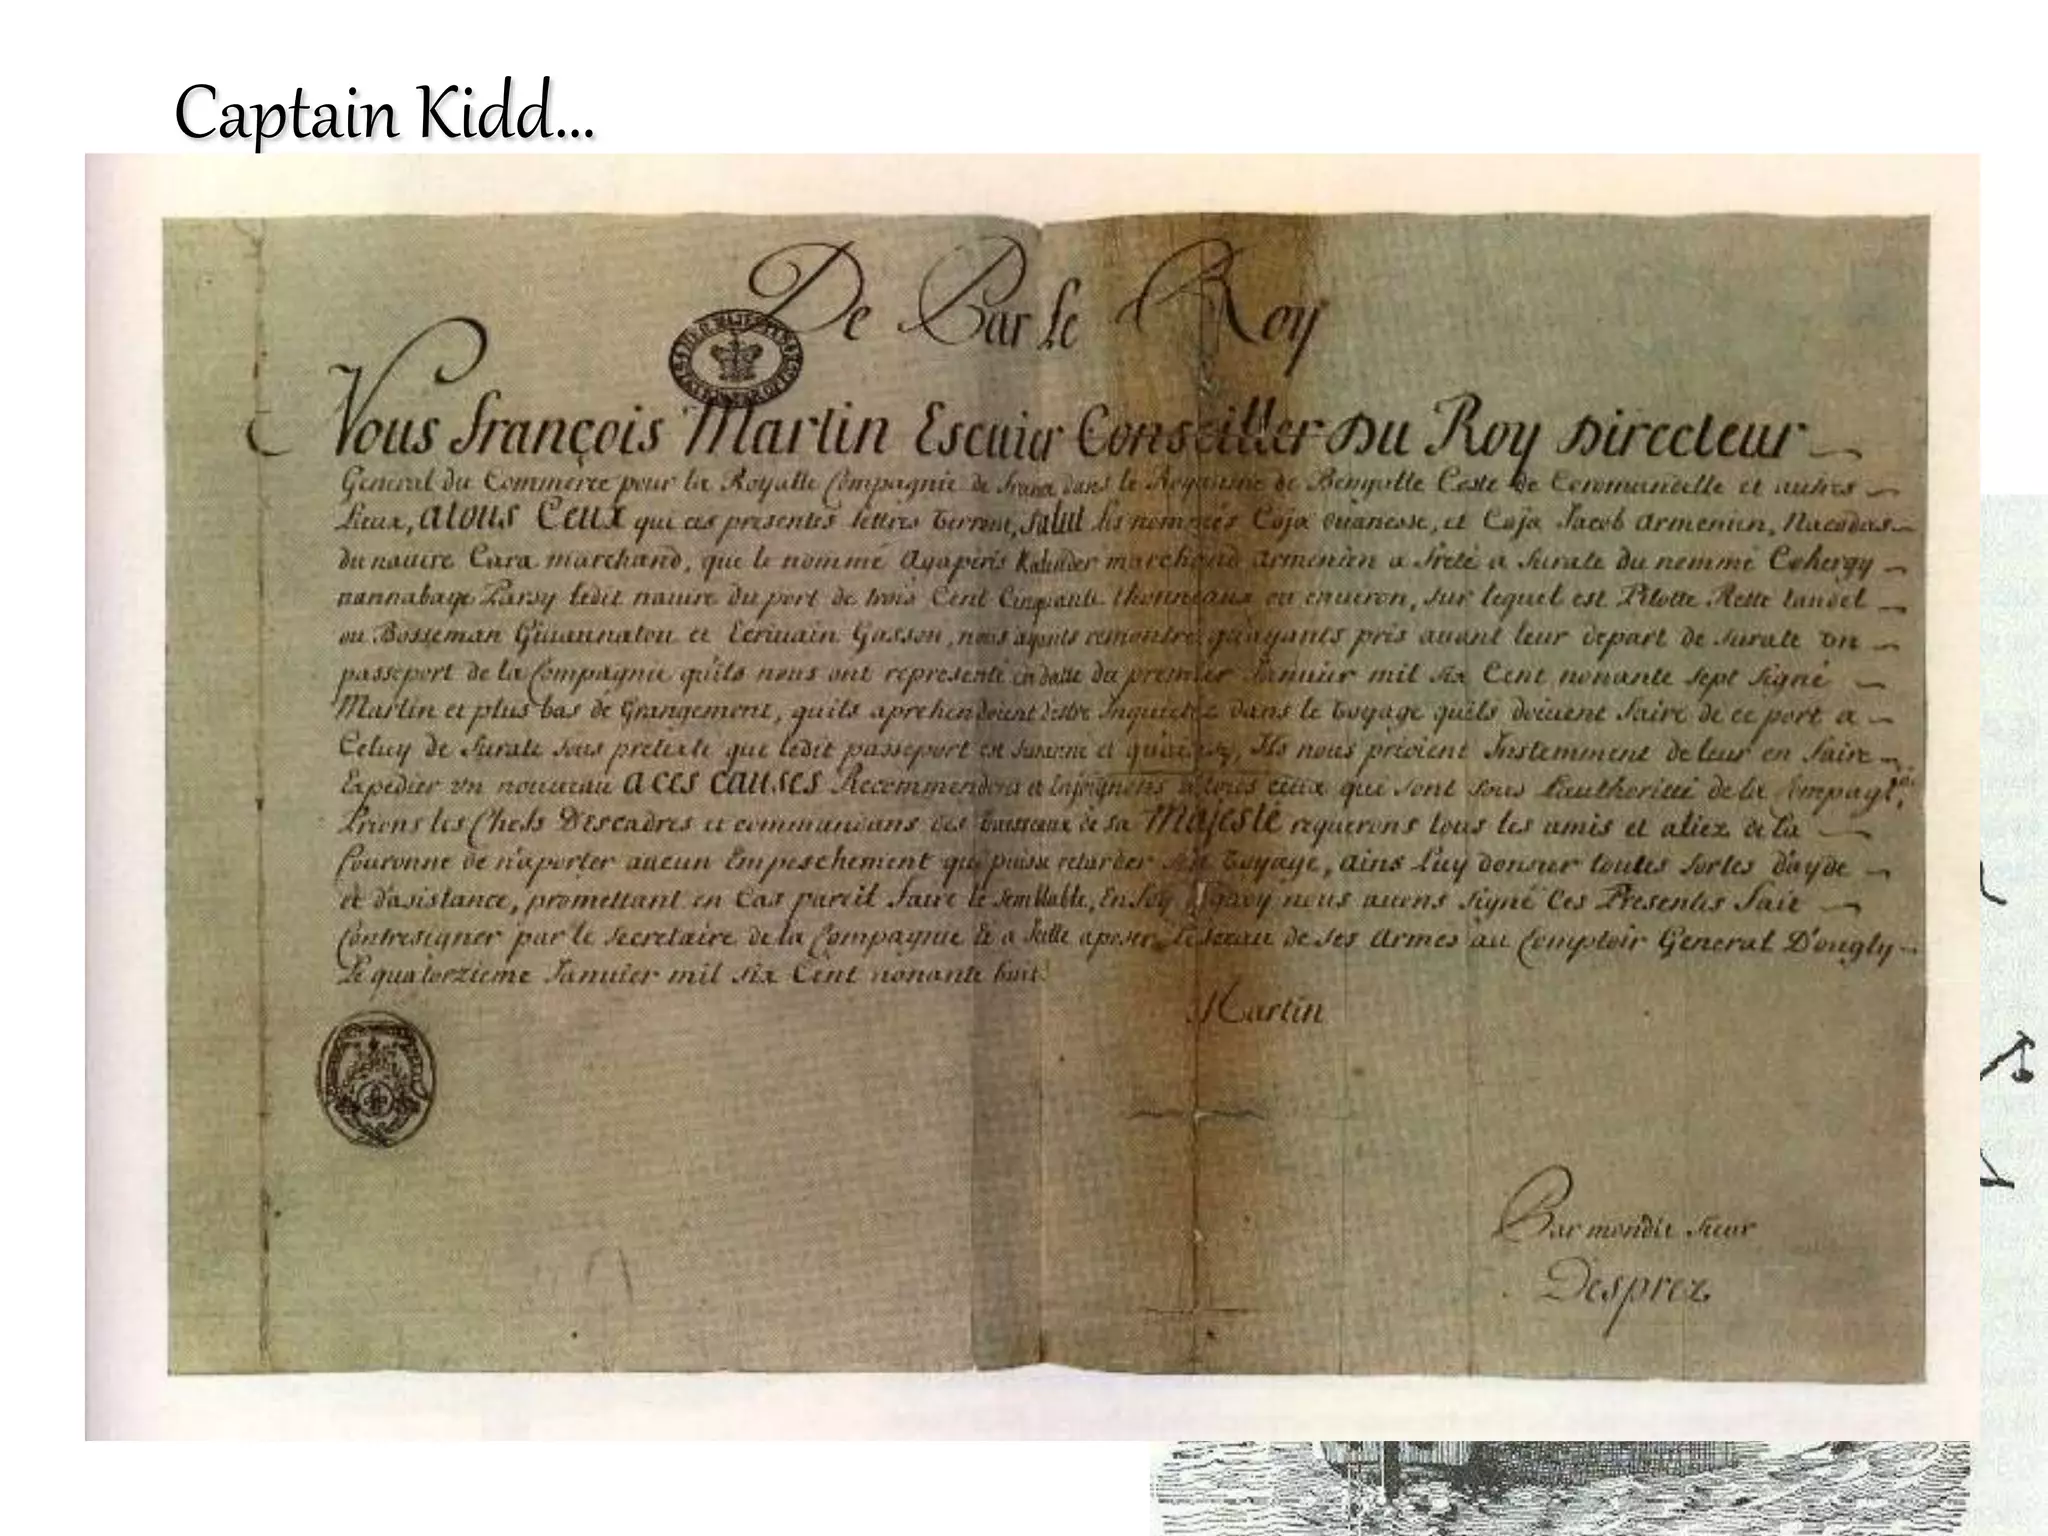 Captain Kidd...
De Par le Roy
Nous François Martin Escuier Conseiller Du Roy Directeur
General du Commerce pour la Royalle Compagnie de france dans le Royaume de Bengalle Coste de Coromandelle et autres
Lieux, atous Ceux qui ces presentes lettres Verront, Salut les nommés Coja Ouanesse, et Coja Jacob armenien, Nacodas
du nauire Cara marchand, que le nommé Agapiris Kalender marchand armenien a freté a Surate du nommé Cohergy
nannabaye Parsy ledit nauire du port de trois Cent Cinquante thonneaux ou enuiron, sur lequel est Pilotte Rette tandel
ou Bosseman et Ecriuain Gasson, nous ayants remontré qu'ayants pris auant leur depart de Surate un
passeport de la Compagnie qu'ils nous ont representé en datte du premier Januier mil six Cent nonante sept signé
Martin et plus bas de Grangemont, quils aprehendoient destre Inquietez dans le Voyage quils doiuent faire de ce port a
Celuy de Surate sous pretexte que ledit passeport est suranné et Ils nous prioient Instemment de leur en faire
Expedier vn nouueau a ces causes Recommendons et Enjoignons a tous ceux qui sont sous L'authorité de la Compagie.
Prions les Chefs D'Escadres et commandans des Vaisseaux de sa Majesté requerons tous les amis et aliez de la
Couronne de n'aporter aucun Empeschement qui puisse retarder son Voyage, ains Luy donner toutes sortes d'ayde
et d'asistance, promettant en Cas pareil faire le semblable, En foy dequoy nous auons signé Ces Presentes fait
Contresigner par le secretaire de la Compagnie Et a Icelle aposer le sceau de ses Armes au Comptoir General D'ougly
Le quatorzieme Januier mil six Cent nonante huit
Martin
Par mondit sieur
Desprez